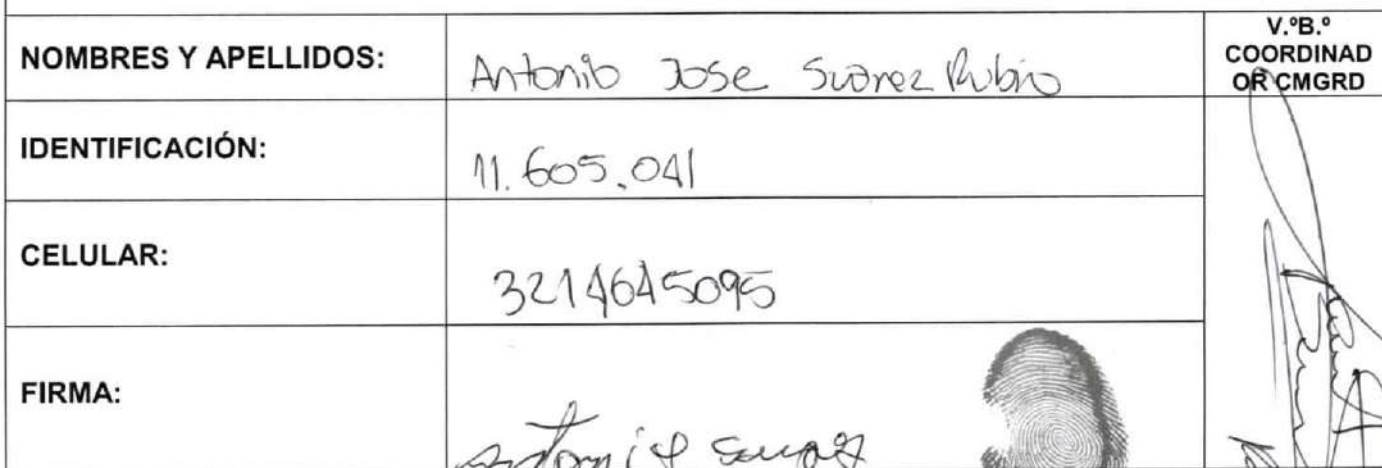 NOMBRES Y APELLIDOS: Antonio Jose Suarez Rubio
V.ºB.º
COORDINAD
OR CMGRD
IDENTIFICACIÓN: 11.605.041
CELULAR: 3214645095
FIRMA: Antonio Suarez